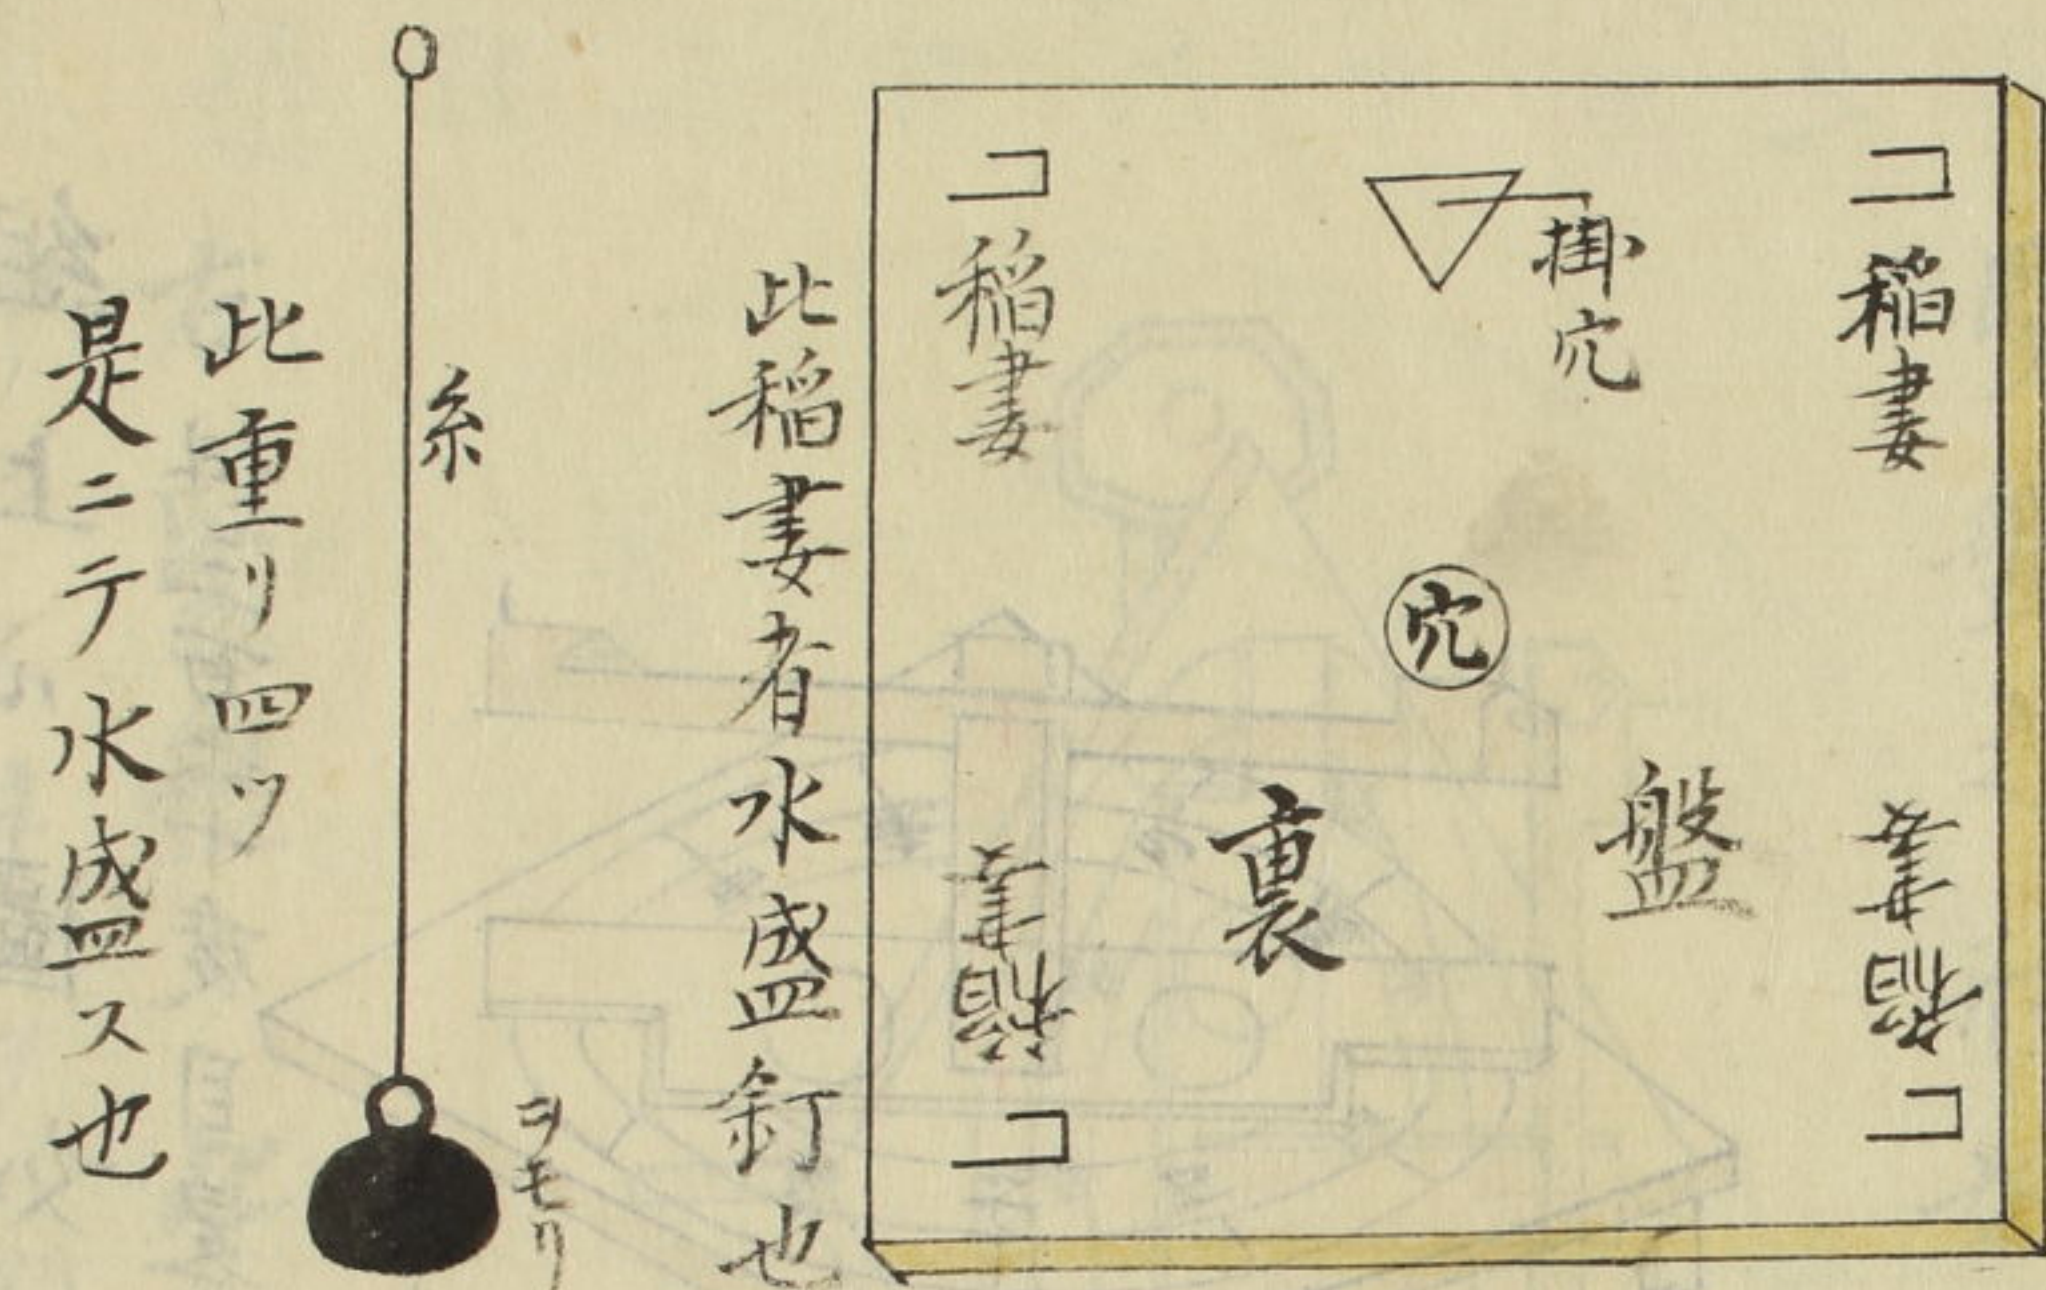 稲妻
掛穴
稲妻
穴
盤
裏
稲妻
稲妻
此稲妻者水盛釘也
糸
ヲモリ
此重リ四ツ
是ニテ水盛ス也